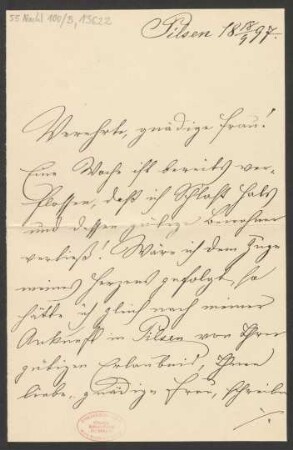 55 Nachl 100/B, 13622
Pilsen 18 18/9 97.
Verehrte, gnädige Frau!
Eine Woche ist bereits ver-
flossen, daß ich Schloß Habs
und dessen gütige Bewohner
verließ! Wäre ich dem Zuge
meines Herzens gefolgt, so
hätte ich gleich nach meiner
Ankunft in Pilsen von Ihrer
gütigen Erlaubniß, Ihnen
liebe, gnädige Frau, schreiben